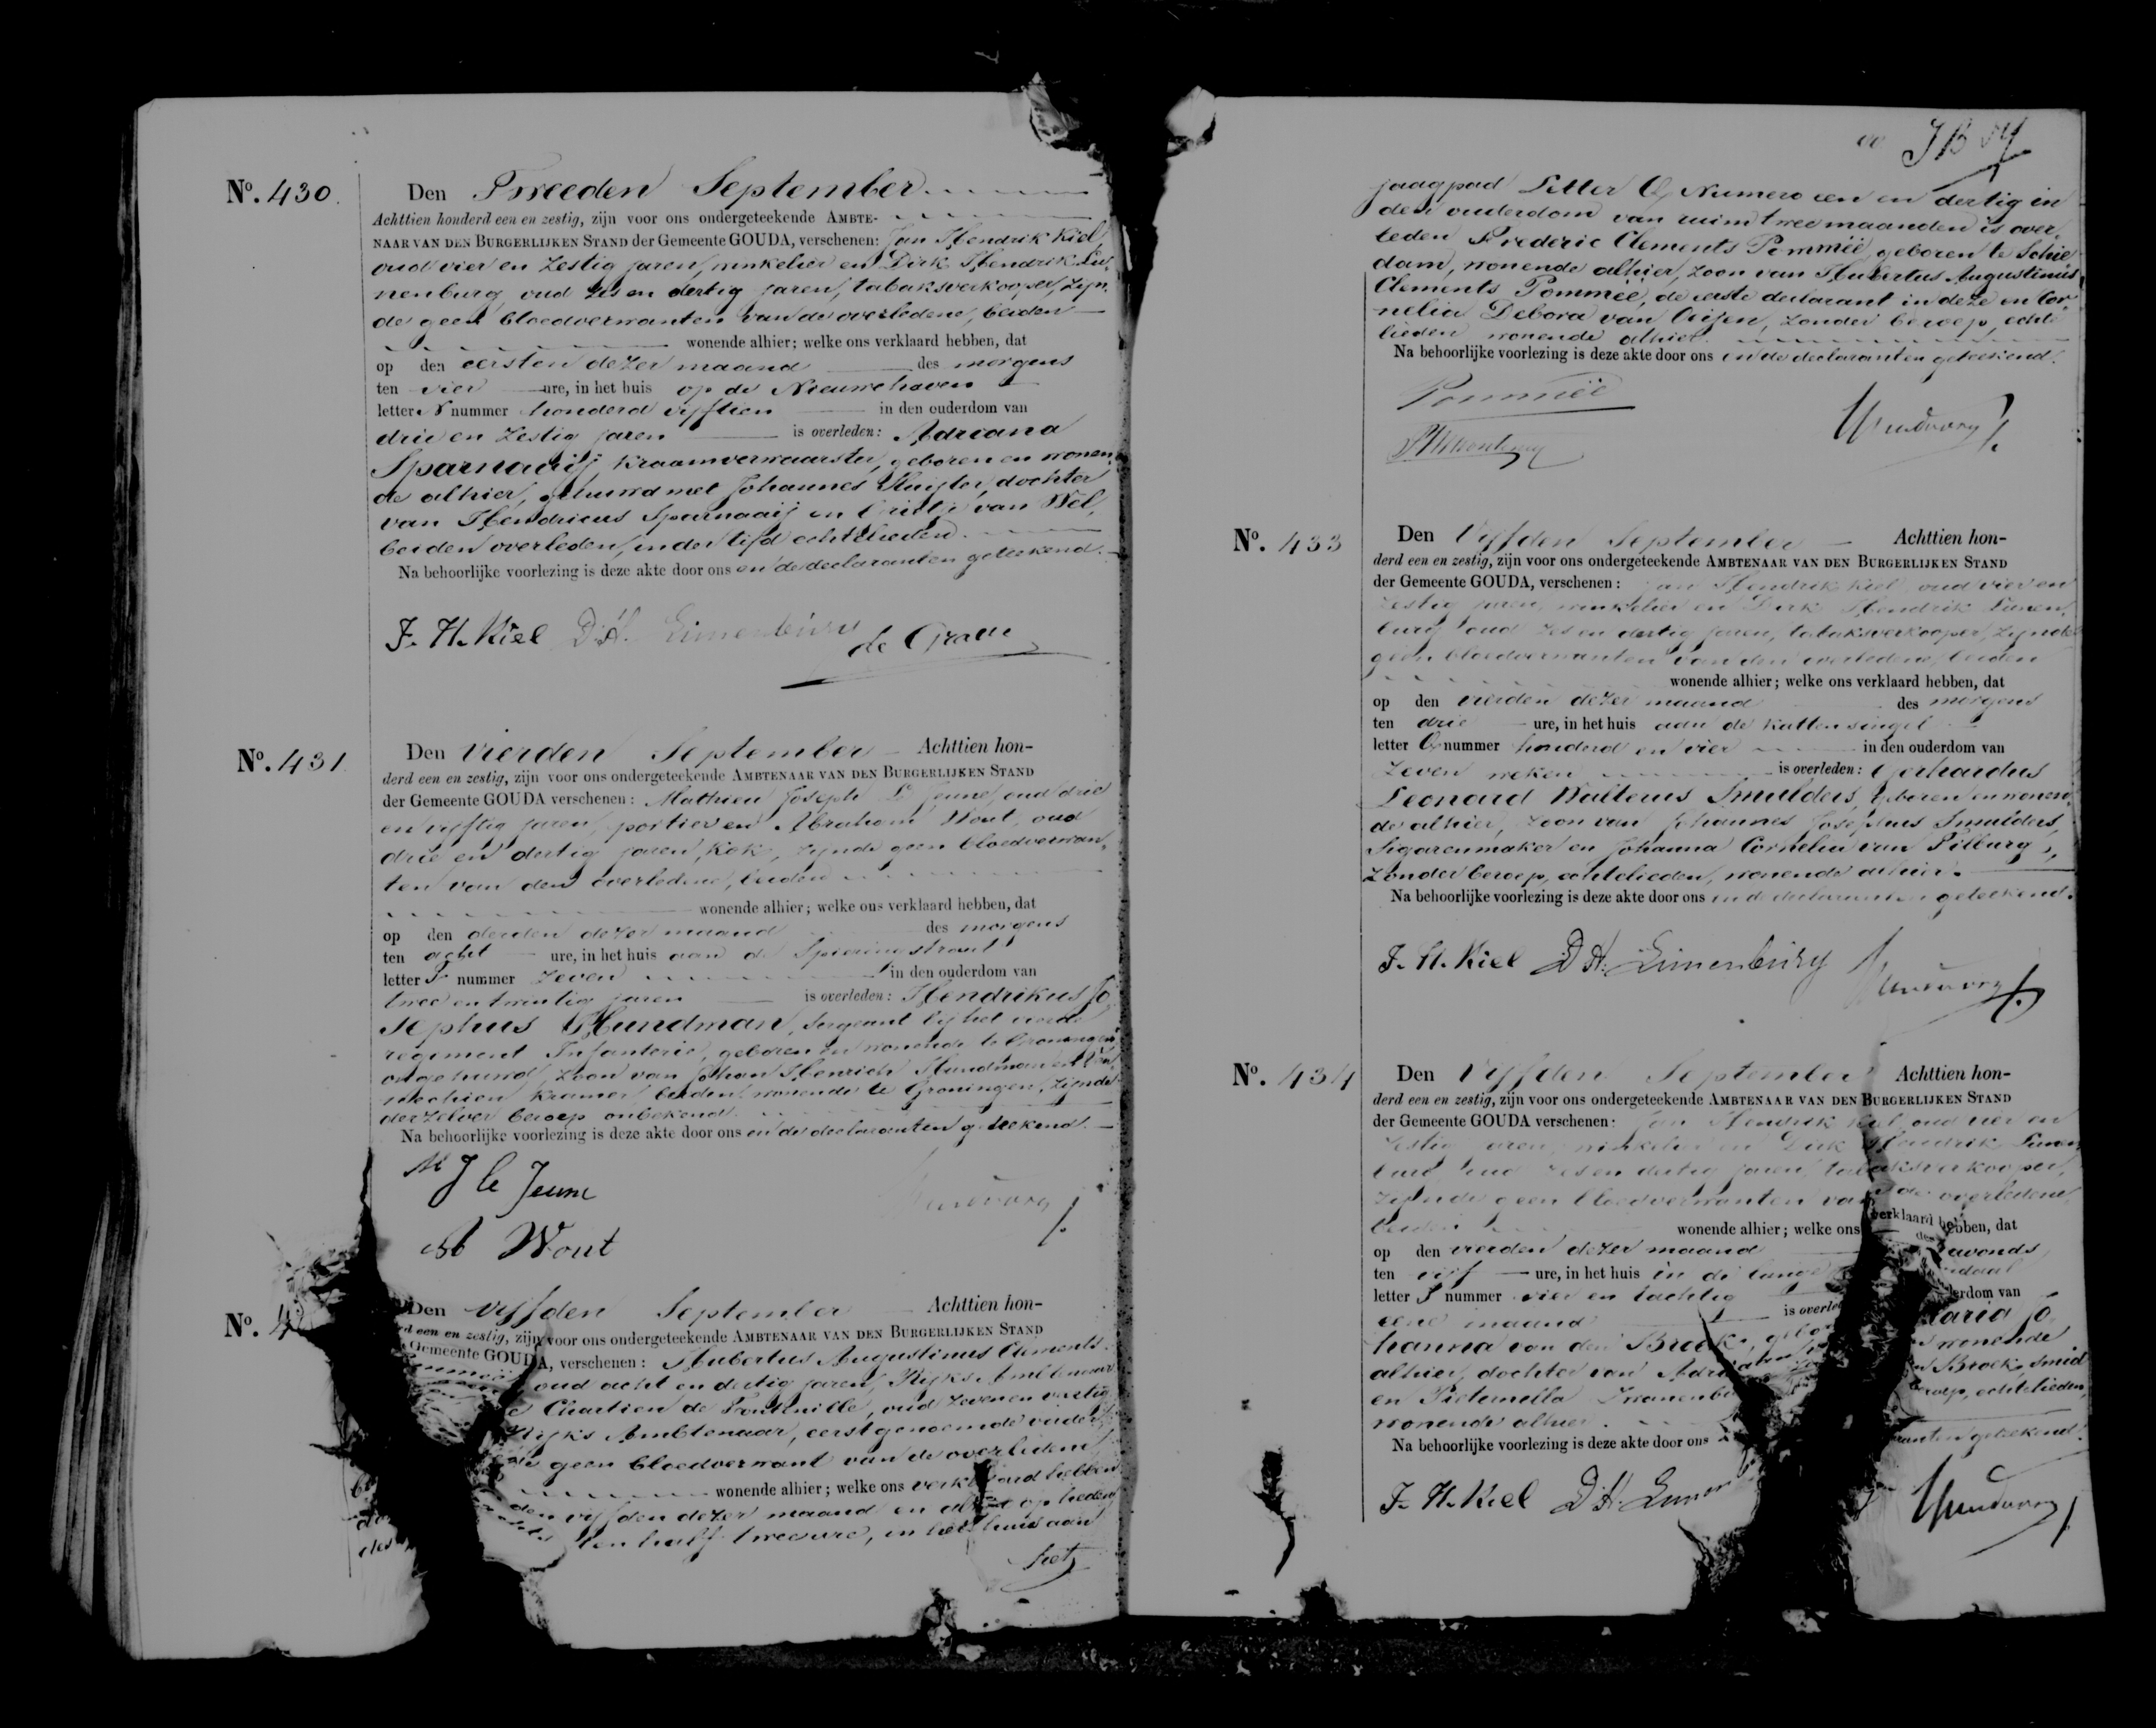 No. 430.
Den Tweeden September
Achttien honderd een en zestig, zijn voor ons ondergeteekende AMBTE-
NAAR VAN DEN BURGERLIJKEN STAND der Gemeente GOUDA, verschenen: Jan Hendrik Kiel,
oud vier en zestig jaren, winkelier en Dirk Hendrik Lu
nenburg, oud zes en dertig jaren, tabaksverkooper, zijn
de geen bloedverwanten van de overledene, beiden
wonende alhier; welke ons verklaard hebben, dat
op den eersten dezer maand des morgens
ten vier ure, in het huis op de Nieuwehaven
letter nummer honderd vijftien in den ouderdom van
drie en zestig jaren is overleden: Adriana
Sparnaaij, kraamverwaarster, geboren en wonen
de alhier, gehuwd met Johannes Sluijter, dochter
van Hendricus Sparnaaij en van Wel,
beiden overleden, in der tijd echtelieden.
Na behoorlijke voorlezing is deze akte door ons en de declaranten geteekend.
J. H. Kiel D. H. Lunenburg de Grave
No. 431.
Den Vierden September Achttien hon-
derd een en zestig, zijn voor ons ondergeteekende AMBTENAAR VAN DEN BURGERLIJKEN STAND
der Gemeente GOUDA verschenen: Mathieu Joseph Le Jeune, oud drie
en vijftig jaren, portier en Abraham Wout, oud
drie en dertig jaren, kok, zijnde geen bloedverwan
ten van den overledene, beiden
wonende alhier; welke ons verklaard hebben, dat
op den derden dezer maand des morgens
ten acht ure, in het huis aan de Spieringstraat
letter nummer zeven in den ouderdom van
twee en twintig jaren is overleden: Hendrikus Jo
sephus Hundman, sergeant bij het vierde
regement Infanterie, geboren en wonende te Groningen
ongehuwd, zoon van Johan Henrich Hundman en
Kramer, beiden wonende te Groningen, zijnde
derzelver beroep onbekend.
Na behoorlijke voorlezing is deze akte door ons en de declaranten geteekend.
M J le Jeune
Ab Wout
No. 4
Den Vijfden September Achttien hon-
d een en zestig, zijn voor ons ondergeteekende AMBTENAAR VAN DEN BURGERLIJKEN STAND
Gemeente GOUDA, verschenen: Hubertus Augustinus Clements
oud acht en dertig jaren, Rijks Ambtenaar
de oud zeven en veertig
Rijks Ambtenaar, eerstgenoemde vader
geen bloedverwant van de overledene,
wonende alhier; welke ons verklaard hebben
den vijfden dezer maand en op heden
ten half twee ure, in het huis aan
het
jaagpad Letter Q Numero een en dertig in
den ouderdom van ruim twee maanden is over
leden Frederic Clements Pommée, geboren te Schie
dam, wonende alhier, zoon van Hubertus Augustinus
Clements Pommée, de eerste declarant in deze en Cor
nelia Debora van zonder beroep, echte
lieden wonende alhier.
Na behoorlijke voorlezing is deze akte door ons en de declaranten geteekend.
Pommée
No. 433
Den Vijfden September Achttien hon-
derd een en zestig, zijn voor ons ondergeteekende AMBTENAAR VAN DEN BURGERLIJKEN STAND
der Gemeente GOUDA, verschenen: Jan Hendrik Kiel, oud vier en
zestig jaren, winkelier en Dirk Hendrik Lunen
burg oud zes en dertig jaren, tabaksverkooper, zijnde
geen bloedverwanten van den overledene, beiden
wonende alhier; welke ons verklaard hebben, dat
op den vierden dezer maand des morgens
ten drie ure, in het huis aan de Kattensingel
letter Q nummer honderd en vier in den ouderdom van
zeven weken is overleden: Gerhardus
Leonard Walterus Smulders, geboren en wonen
de alhier, zoon van Johannes Josephus Smulders,
Sigarenmaker en Johanna Cornelia van Tilburg,
zonder beroep, echtelieden, wonende alhier.
Na behoorlijke voorlezing is deze akte door ons en de declaranten geteekend.
J. H. Kiel D. H. Lunenburg
No. 434
Den Vijfden September Achttien hon-
derd een en zestig, zijn voor ons ondergeteekende AMBTENAAR VAN DEN BURGERLIJKEN STAND
der Gemeente GOUDA verschenen: Jan Hendrik Kiel, oud vier en
zestig jaren, winkelier en Dirk Hendrik Lunen
burg oud zes en dertig jaren, tabaksverkooper,
zijnde geen bloedverwanten van de overledene,
beiden wonende alhier; welke ons verklaard hebben, dat
op den vierden dezer maand des avonds
ten vijf ure, in het huis in de lange
letter nummer vier en tachtig derdom van
eene maand is overle Maria Jo
hanna van den Broek, gebo wonende
alhier, dochter van Adri Broek, smid
en Pieternella roep, echtelieden,
wonende alhier.
Na behoorlijke voorlezing is deze akte door ons ranten geteekend.
J. H. Kiel D. H. Lunen